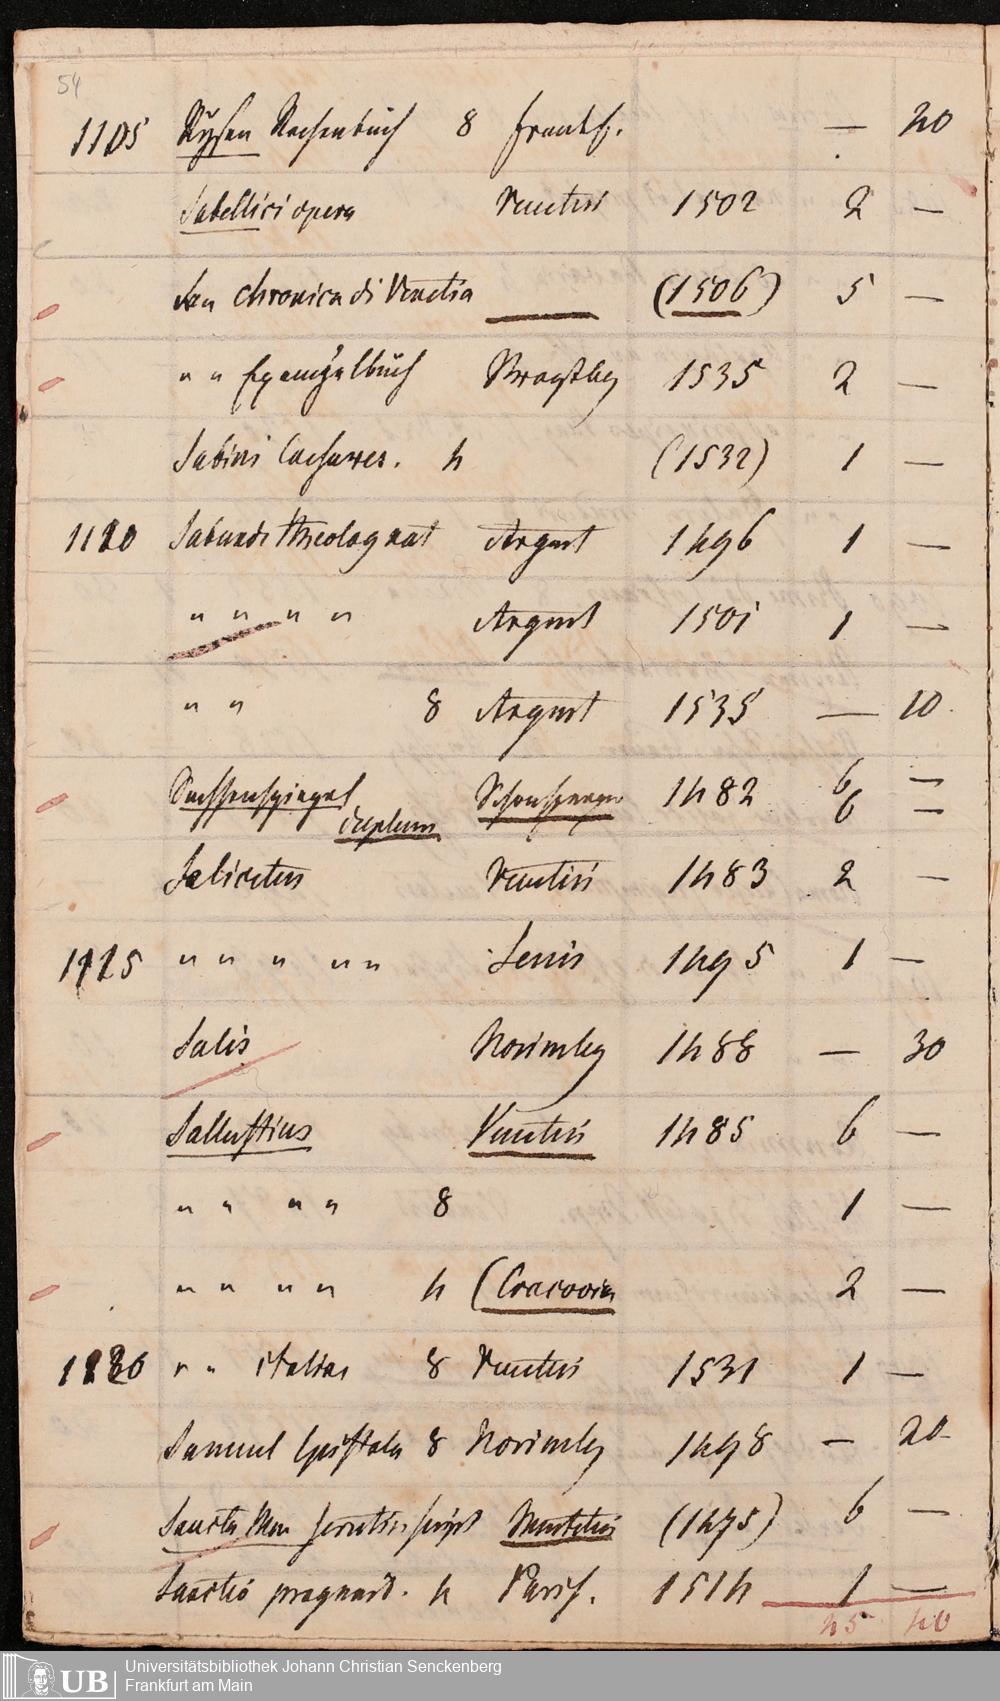 54
1105 Rysen Rechenbuch 8 Frankf. — 20
Sabellici opera Venetiis 1502 2 —
chronica di Venetia (1506) 5 —
" " 1535 2 —
Sabini Caesares. 4 (1532) 1 —
1120 Sabunde theolog nat Argent 1496 1 —
" " " " Argent 1501 1 —
" " 8 Argent 1535 — 10
Sachsenspiegel Schonsperger 1482 6 —
duplum 6 —
Salicetus Venetiis 1483 2 —
1125 " " " " " 1495 1 —
Salis Norimbg 1488 — 30
Sallustius Venetiis 1485 6 —
" " " " 8 1 —
" " " " 4 (Cracovia 2 —
1130 " " italice 8 Venetiis 1531 1 —
Samuel Epistola 8 Norimbg 1498 — 20
Sancta Mar scrutin script (1475) 6 —
Sanctio pragmat. 4 Paris. 1514 1 —
45 40
UB Universitätsbibliothek Johann Christian Senckenberg
Frankfurt am Main